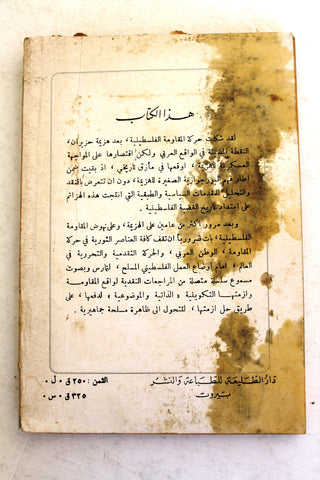 هذا الكتاب
لقد شكلت حركة المقاومة الفلسطينية، بعد هزيمة حزيران،
النقطة المضيئة في الواقع العربي ولكن اقتصارها على المواجهة
العسكرية اوقعها في مأزق تاريخي، اذ بقيت ضمن
إطار فهم البورجوازية الصغيرة للهزيمة، دون ان تتعرض بالنقد
والتحليل للمقدمات السياسية والطبقية التي انتجت هذه الهزائم
على امتداد تاريخ القضية الفلسطينية.
وبعد مرور اكثر من عامين على الهزيمة، وعلى نهوض المقاومة
الفلسطينية، بات ضروريا ان تقف كافة العناصر الثورية في حركة
المقاومة، الوطن العربي، والحركة التقدمية والتحررية في
العالم، امام أوضاع العمل الفلسطيني المسلح، لتمارس وبصوت
مسموع سلسلة متصلة من المراجعات النقدية لواقع المقاومة
وازمتها التكوينية، الذاتية والموضوعية، لدفعها، على
طريق حل ازمتها، للتحول الى ظاهرة مسلحة جماهيرية.
دار الطليعة للطباعة والنشر
بيروت
الثمن: ٢٥٠ ق.ل.
٣٢٥ ق.س.